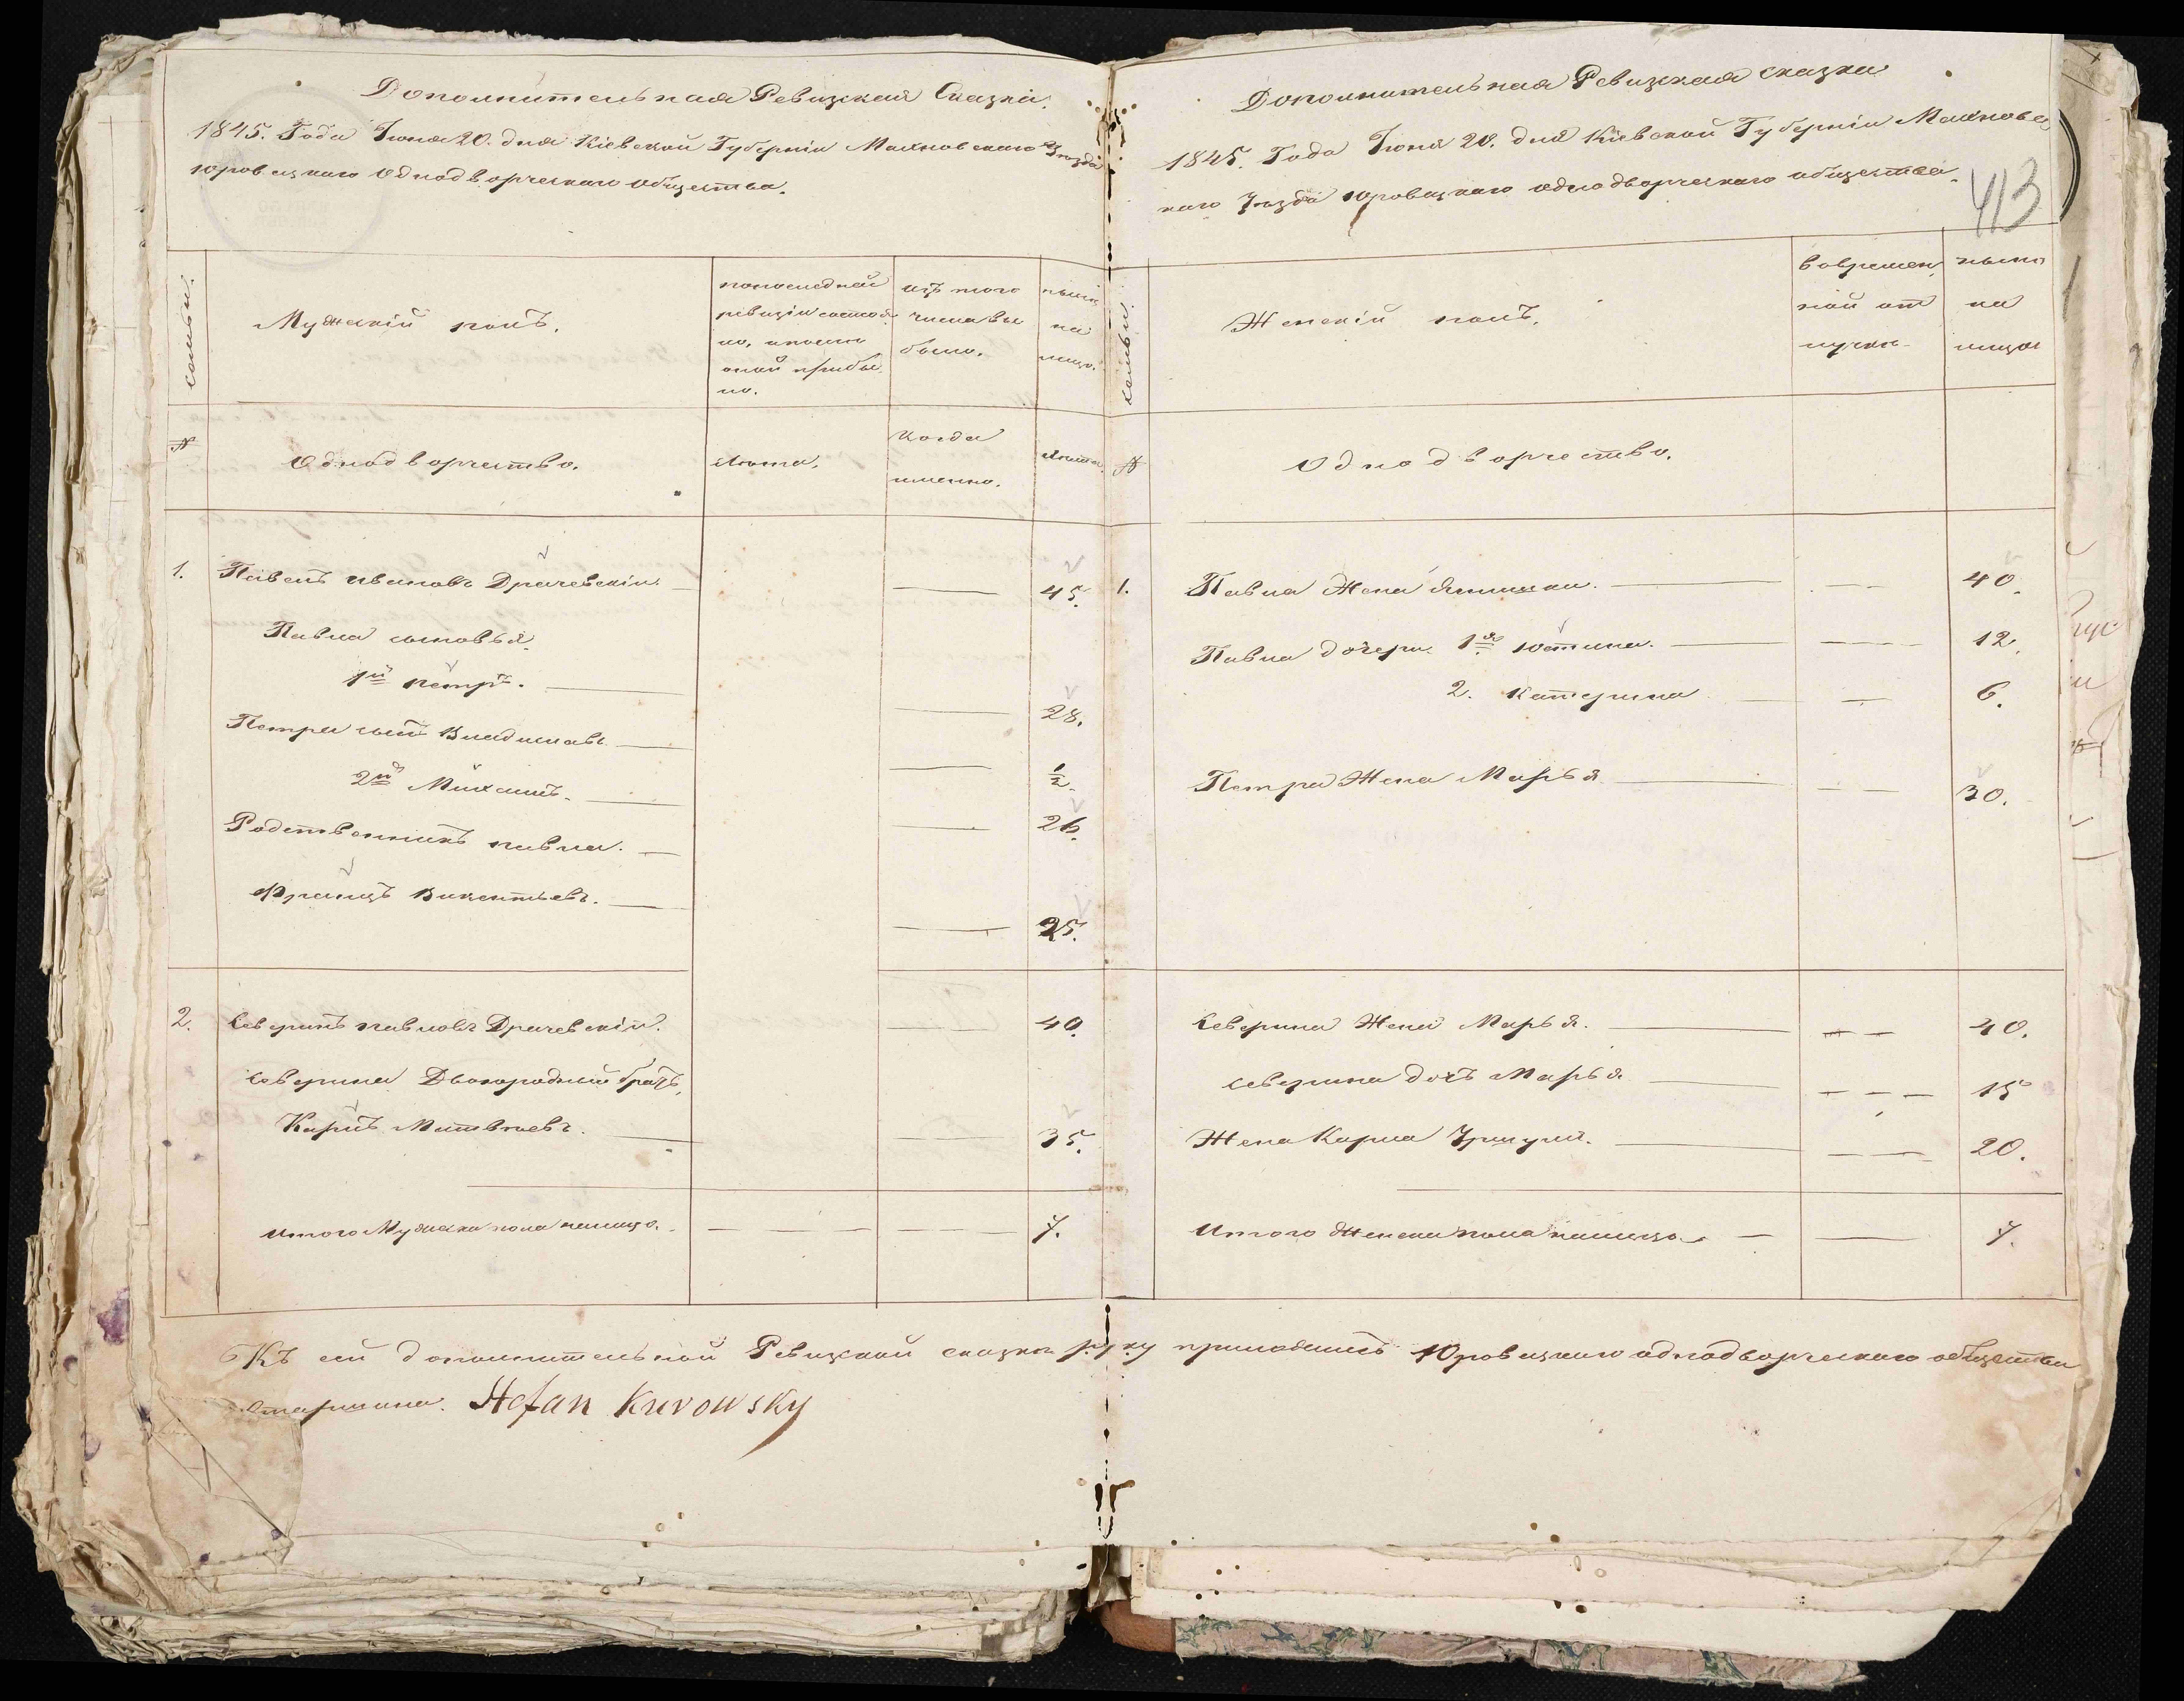 Дополнительная Ревизская Сказка.
1845. Года Іюня 20. дня Кіевской Губерніи Махновскаго Уезда
Юровецкаго Однодворческаго Общества.
семьи.
Мужескій полъ.
попоследней
ревизіи состоя
ло, и после
оной прибы
ло.
изъ того
числа вы
было.
ныне
на
лицо.
№
Однодворчество.
Лета.
когда
именно.
Лета.
1. Павелъ Ивановъ Драчевскій. 45.
Павла сыновья.
1й Петръ. 28.
Петра сынъ Владиславъ ½.
2й Михаилъ. 26.
Родственникъ павла.
Францъ Викентьевъ. 25.
2. Северинъ павловъ Драчевскій. 40.
Северина Двоюродный братъ,
Карлъ Матвеевъ. 35.
Итого Мужеска пола налицо. 7.
Дополнительная Ревизская сказка
413
1845. Года Іюня 20. дня Кіевской Губерніи Махновс
каго Уезда Юровецкаго однодворческаго общества.
семьи.
Женскій полъ.
вовремен
ной от
лучке
ныне
на
лицо
№
Однодворчество.
1. Павла Жена 40.
Павла дочери 1я Юстина. 12.
2. Катерина 6.
Петра Жена Марья 30.
Северина Жена Марья. 40.
Северина дочь Марья 15
Жена Карла 20.
Итого Женска пола налицо 7.
Къ сей дополнительной Ревизской сказке руку приложилъ Юровецкаго однодворческаго общества
Старшина. Stefan Kurowsky